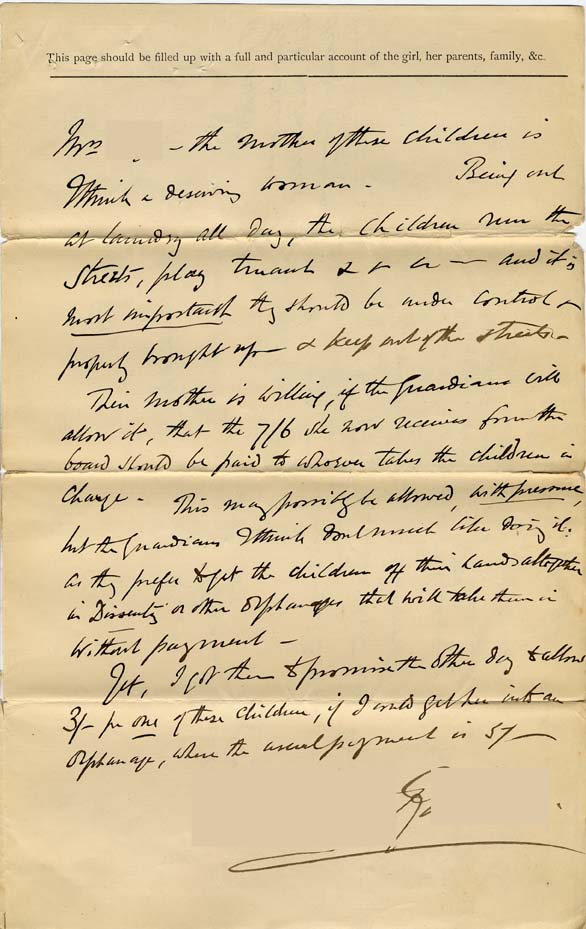 This page should be filled up with a full and particular account of the girl, her parents, family, &c.
Mrs – the mother of these children is
I think a deserving woman – Being out
at laundry all day, the children run the
streets, play truant & – and it is
most important they should be under control &
properly brought up – & keep out of the streets –
Their mother is willing, if the Guardians will
allow it, that the 7/6 she now receives from the
board should be paid to whoever takes the children in
charge – This may possibly be allowed, with pressure,
but the Guardians I think don't much like doing it:
as they prefer to get the children off their hands altogether
in Dissenting or other Orphanages that will take them in
without payment –
Yet, I got them to promise the other day to allow
3/– for one of these children, if I could get her into an
Orphanage, where the usual payment is 5/–